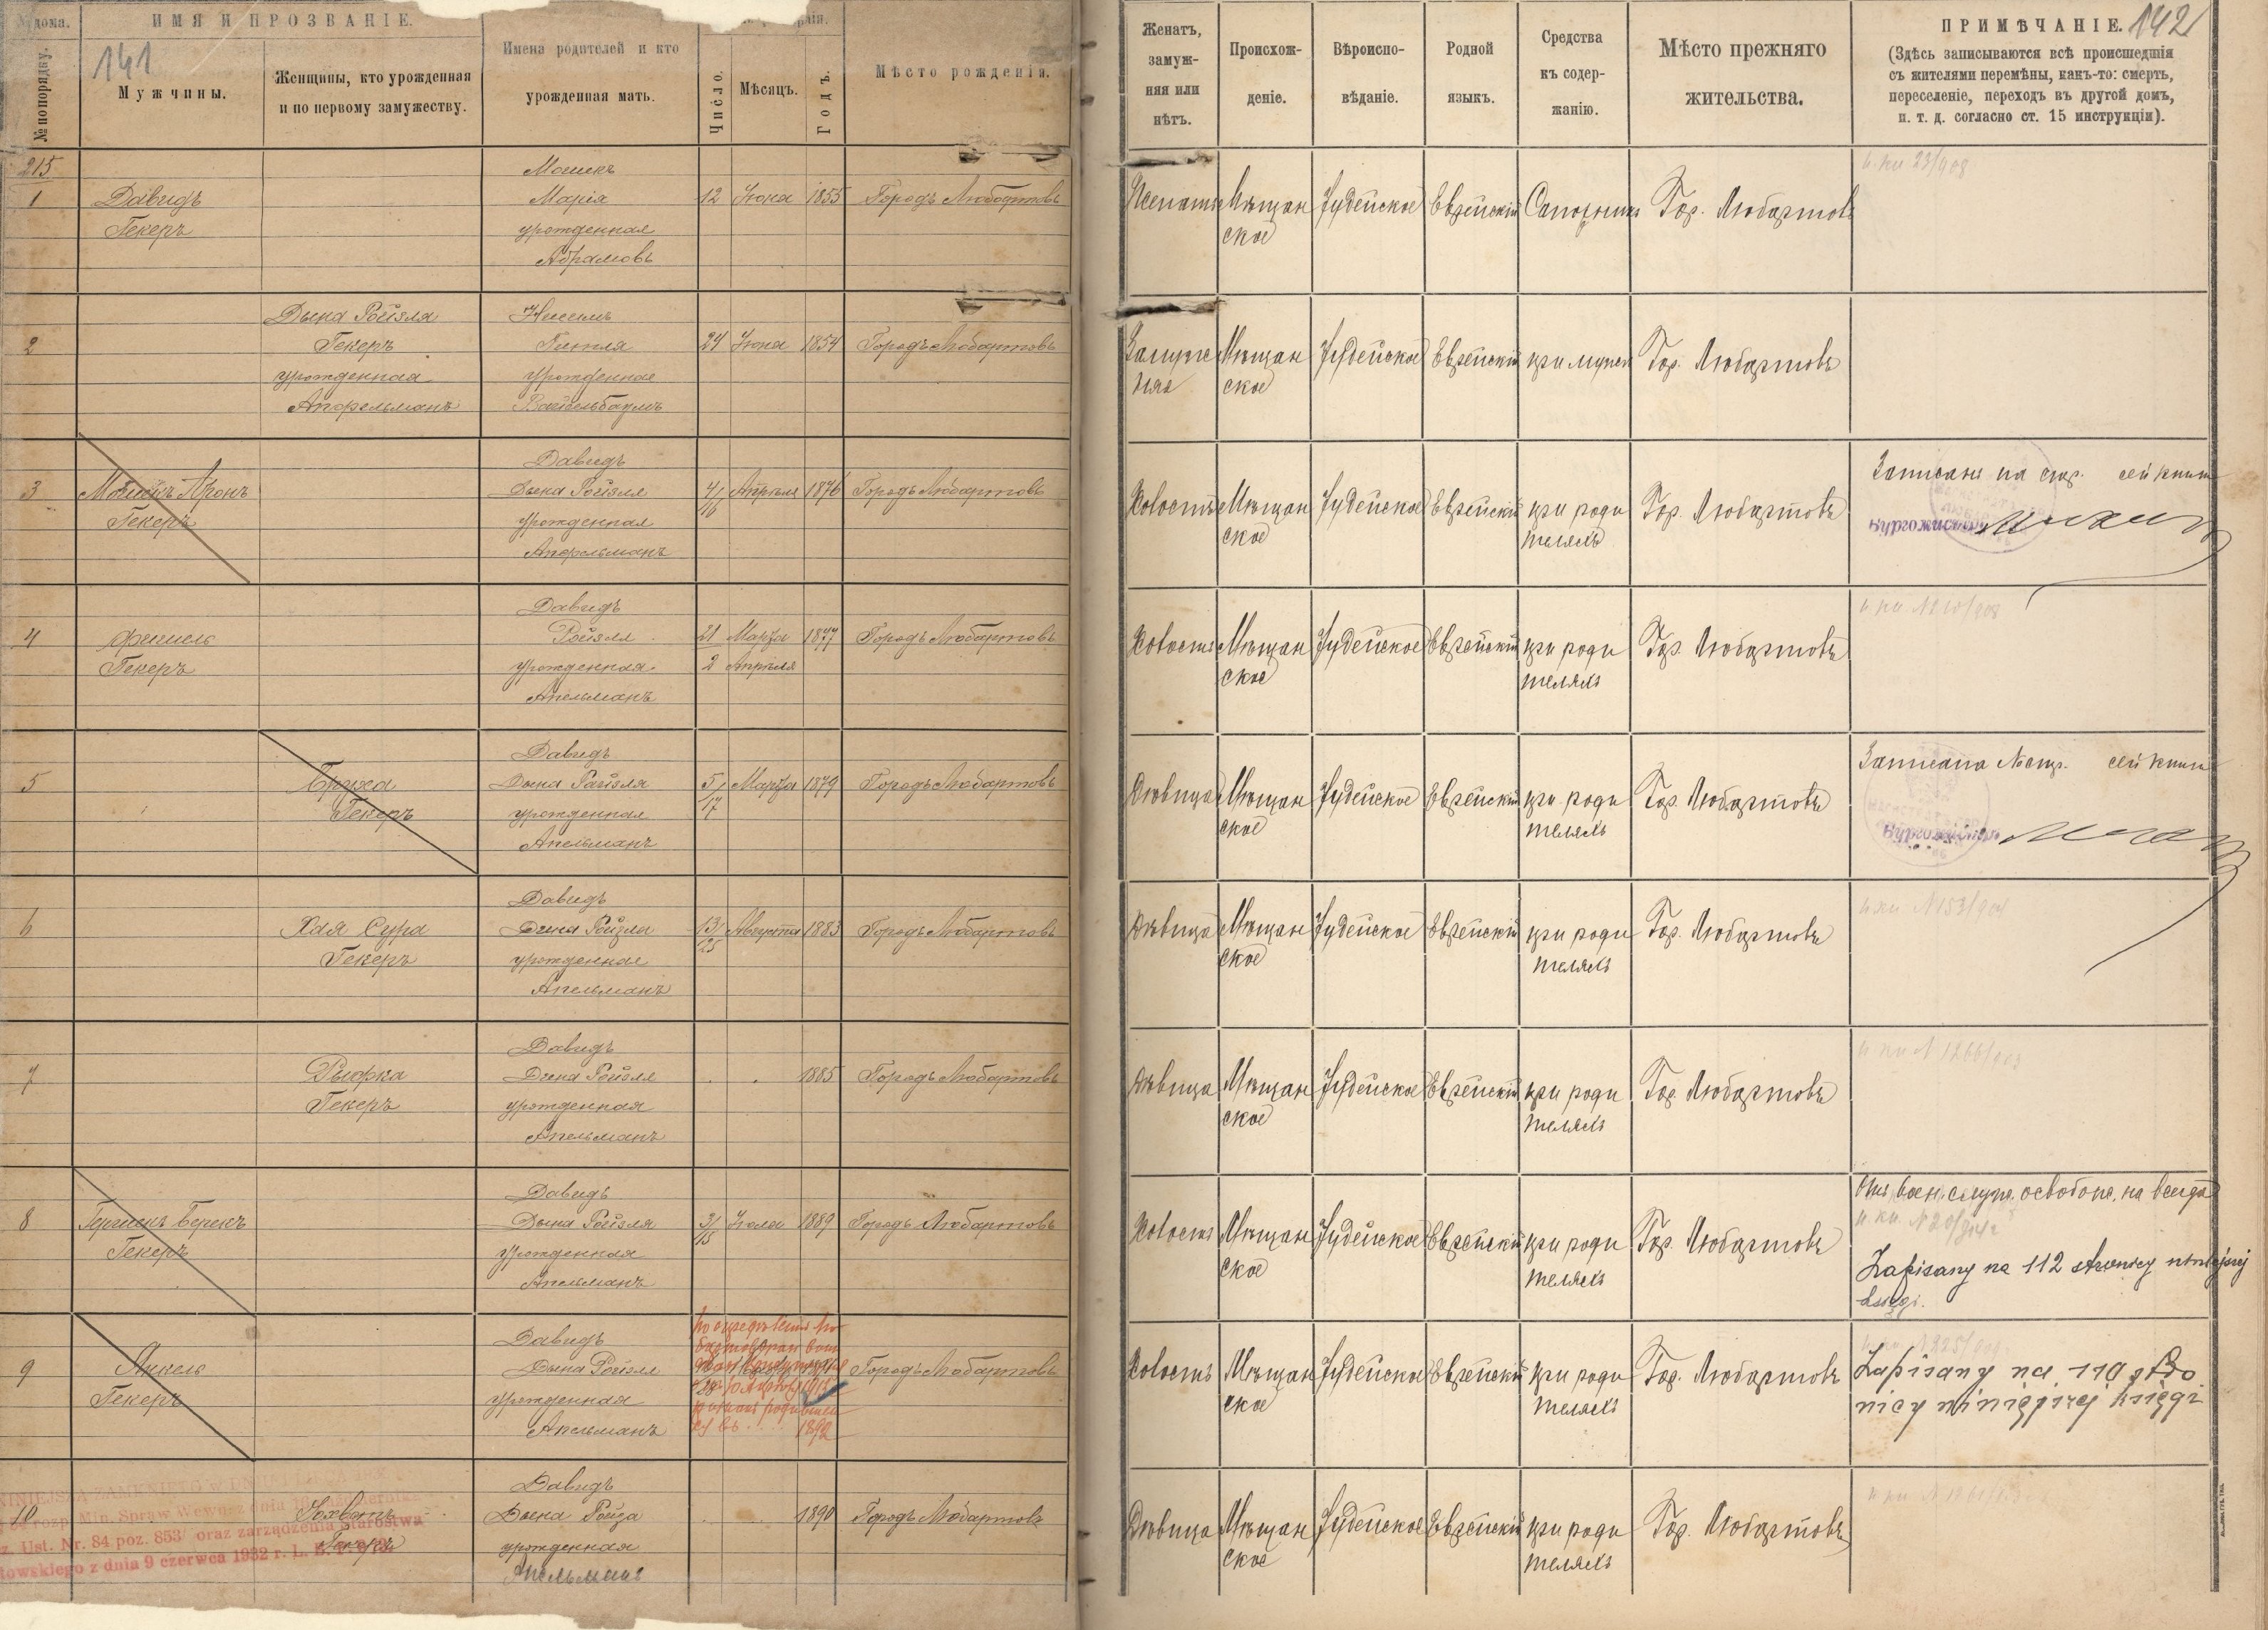 № дома.
ИМЯ И ПРОЗВАНІЕ.
141
№ по порядку.
Мужчины.
Женщины, кто урожденная
и по первому замужеству.
Имена родителей и кто
урожденная мать.
Число.
Мѣсяцъ.
Годъ.
Мѣсто рожденія.
Женатъ,
замуж-
няя или
нѣтъ.
Происхож-
деніе.
Вѣроиспо-
вѣданіе.
Родной
языкъ.
Средства
къ содер-
жанію.
Мѣсто прежняго
жительства.
ПРИМѢЧАНІЕ.
142
(Здѣсь записываются всѣ происшедшія
съ жителями перемѣны, какъ-то: смерть,
переселеніе, переходъ въ другой домъ,
и. т. д. согласно ст. 15 инструкціи).
215
1
Давидъ
Гекеръ
Мошекъ
Марія
урожденная
Абрамовъ
12 Іюна 1855 Городъ Любартовъ
Женатъ Мѣщан
ское
Іудейское Еврейскій Сапожникъ Гор. Любартовъ
2
Дына Ройзля
Гекеръ
урожденная
Апфельманъ
урожденная
24 Іюна 1854 Городъ Любартовъ
Замуж
няя
Мѣщан
ское
Іудейское Еврейскій при мужѣ Гор. Любартовъ
3
Мошекъ Аронъ
Гекеръ
Давидъ
Дына Ройзля
урожденная
Апфельманъ
4/16 Апрѣля 1876 Городъ Любартовъ
Холостъ Мѣщан
ское
Іудейское Еврейскій при роди
теляхъ
Гор. Любартовъ
Записанъ на стр. сей книги
Бургомистръ
4
Фишель
Гекеръ
Давидъ
Ройзля
урожденная
Апельманъ
21 Марта 1877 Городъ Любартовъ
2 Апрѣля
Холостъ Мѣщан
ское
Іудейское Еврейскій при роди
теляхъ
Гор. Любартовъ
5
Бруха
Гекеръ
Давидъ
Дына Ройзля
урожденная
Апельманъ
5/17 Марта 1879 Городъ Любартовъ
Дѣвица Мѣщан
ское
Іудейское Еврейскій при роди
теляхъ
Гор. Любартовъ
Записана стр. сей книги
Бургомистръ
6
Хая Сура
Гекеръ
Давидъ
Дына Ройзля
урожденная
Апельманъ
13/25 Августа 1883 Городъ Любартовъ
Дѣвица Мѣщан
ское
Іудейское Еврейскій при роди
теляхъ
Гор. Любартовъ
7
Рыфка
Гекеръ
Давидъ
Дына Ройзля
урожденная
Апельманъ
1885 Городъ Любартовъ
Дѣвица Мѣщан
ское
Іудейское Еврейскій при роди
теляхъ
Гор. Любартовъ
8
Гершекъ Берекъ
Гекеръ
Давидъ
Дына Ройзля
урожденная
Апельманъ
3/15 Іюля 1889 Городъ Любартовъ
Холостъ Мѣщан
ское
Іудейское Еврейскій при роди
теляхъ
Гор. Любартовъ
Отъ воен. служ. освобожд. на всегда
Zapisany na 112 stronicy niniejszej
księgi.
9
Янкель
Гекеръ
Давидъ
Дына Ройзля
урожденная
Апельманъ
1892
Городъ Любартовъ
Холостъ Мѣщан
ское
Іудейское Еврейскій при роди
теляхъ
Гор. Любартовъ
Zapisany na 110 stro
nicy niniejszej księgi
10
Гекеръ
Давидъ
Дына Ройза
урожденная
Апельманъ
1890 Городъ Любартовъ
Дѣвица Мѣщан
ское
Іудейское Еврейскій при роди
теляхъ
Гор. Любартовъ
rozp. Min. Spraw Wewn. z dnia
z. Ust. Nr. 84 poz. 853/ oraz zarządzenia Starostwa
owskiego z dnia 9 czerwca 1932 r. L.